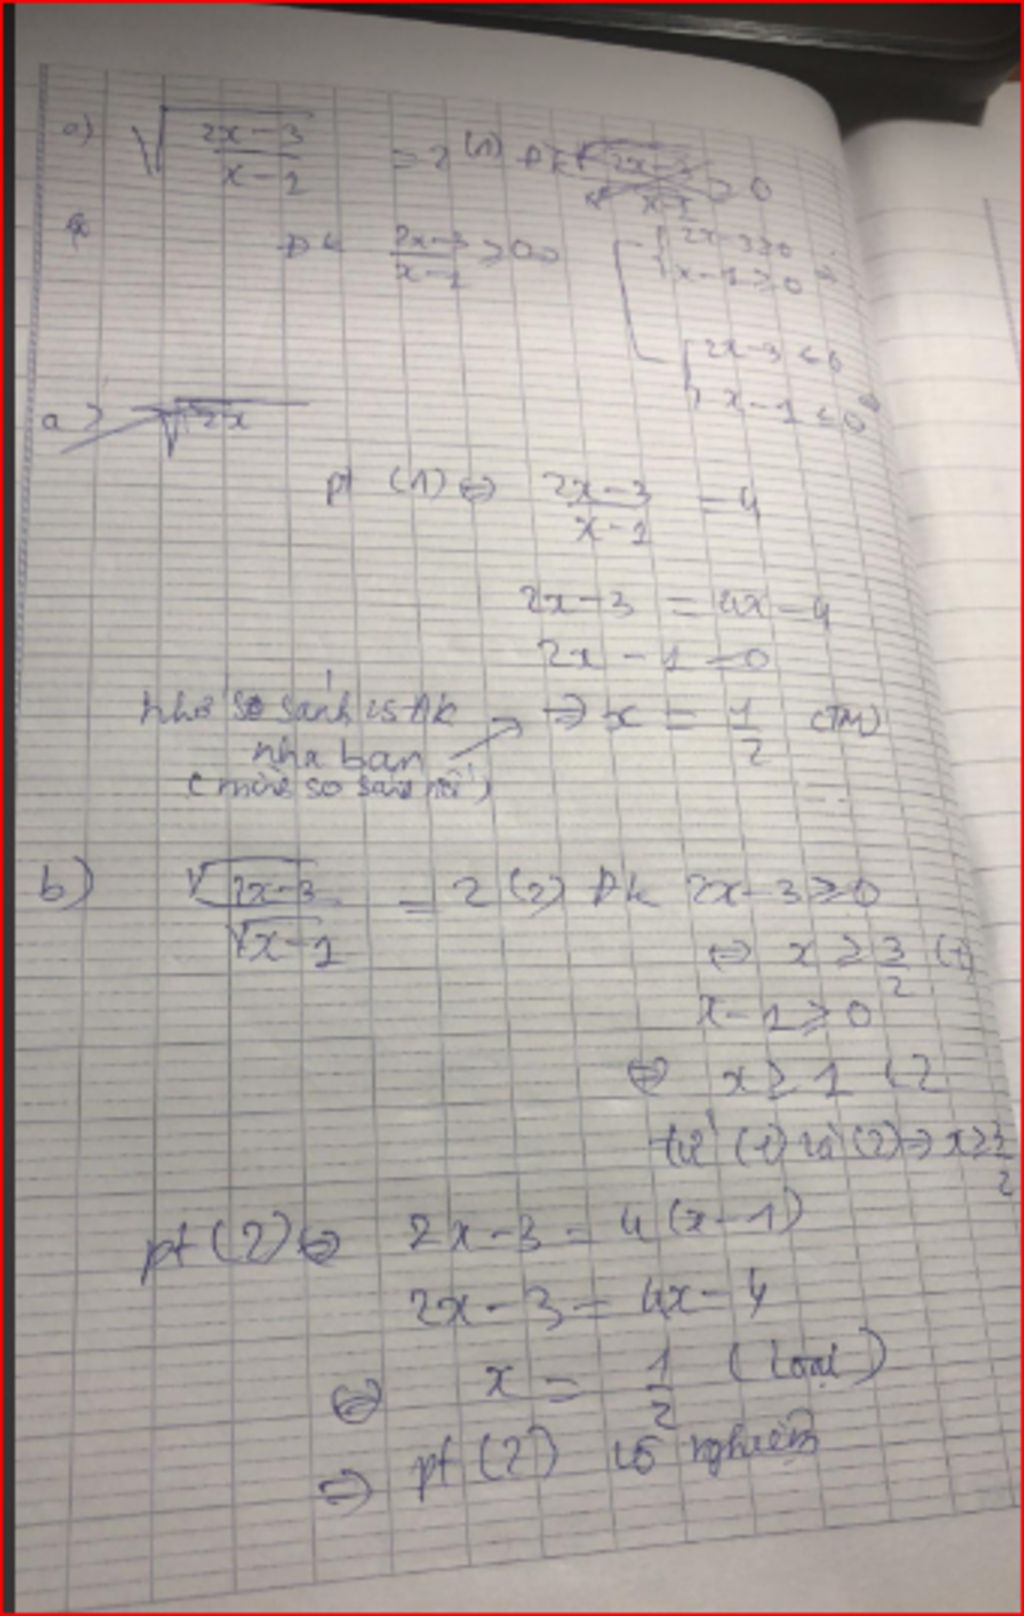 a) √(2x-3 / x-1) = 2 (1) Đk
Đk 2x-3 / x-1 ≥ 0 ⇔ [ { 2x-3 ≥ 0
x-1 ≥ 0
{ 2x-3 < 0
x-1 < 0
a) √2x
pt (1) ⇔ 2x-3 / x-1 = 4
2x-3 = 4x-4
2x-1 = 0
nhớ so sánh vs đk ⇒ x = 1/2 (TM)
nha bạn
b) √2x-3 / √x-1 = 2 (2) Đk 2x-3 ≥ 0
⇔ x ≥ 3/2 (1)
x-1 ≥ 0
⇔ x ≥ 1 (2
từ (1) và (2) ⇒ x ≥ 3/2
pt (2) ⇔ 2x-3 = 4(x-1)
2x-3 = 4x-4
⇔ x = 1/2 (loại)
⇒ pt (2) vô nghiệm